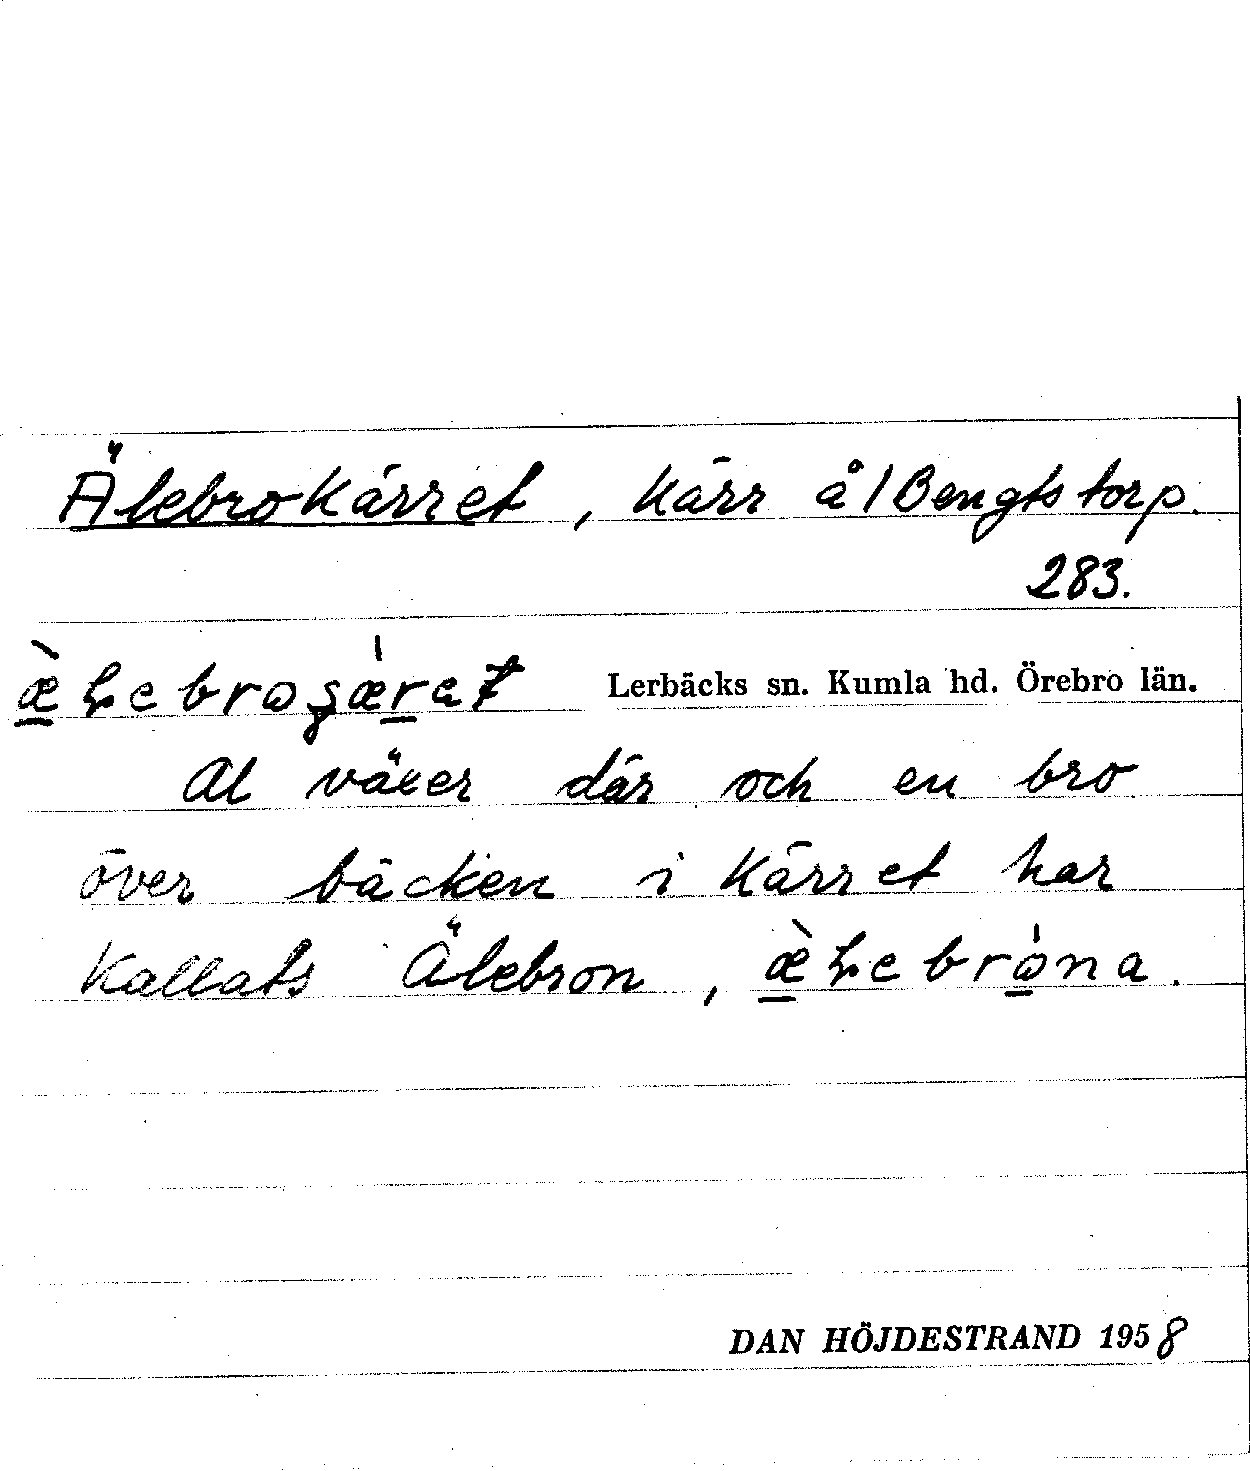 Älebrokärret, kärr å/Bengtstorp.
283.
æ̀ɫebroʂæ̀ret Lerbäcks sn. Kumla hd. Örebro län.
Al växer där och en bro
över bäcken i kärret har
kallats Älebron, æ̀ɫebróna.
DAN HÖJDESTRAND 1958